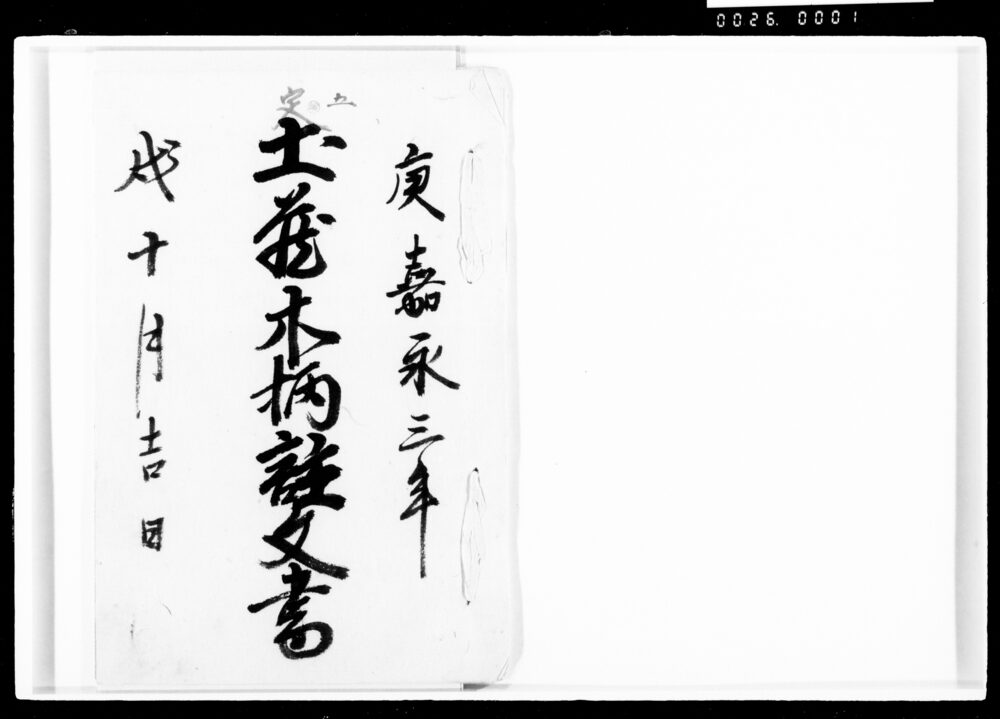 0026. 0001
庚嘉永三年
土蔵木柄註文書
戌十月吉日
定 五